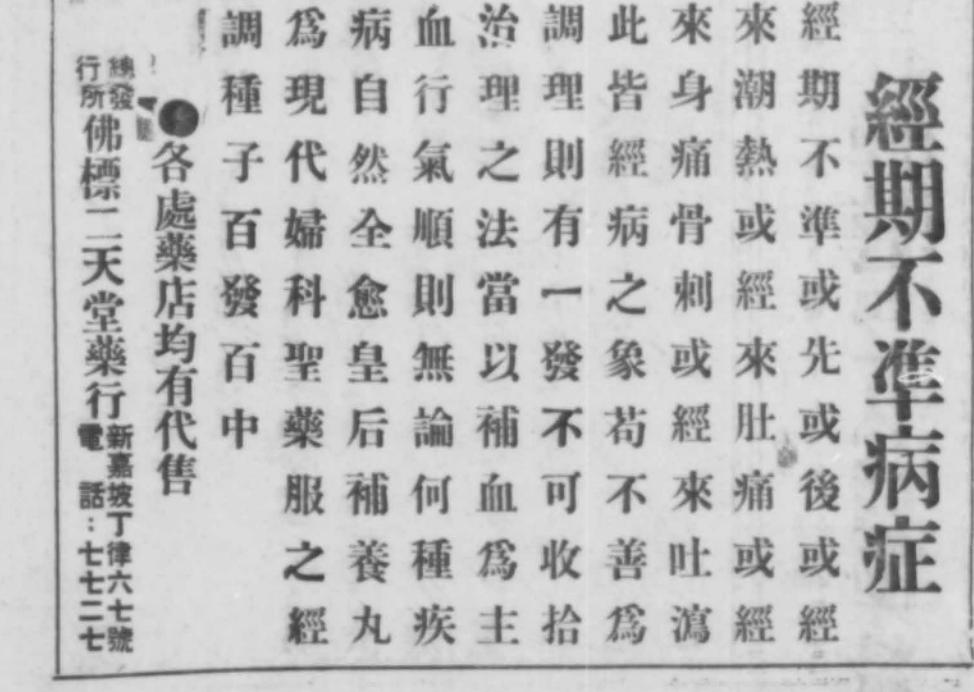 經期不準病症
經期不準或先或後或經
來潮熱或經來肚痛或經
來身痛骨刺或經來吐瀉
此皆經病之象苟不善為
調理則有一發不可收拾
治理之法當以補血為主
血行氣順則無論何種疾
病自然全愈皇后補養丸
為現代婦科聖藥服之經
調種子百發百中
●各處藥店均有代售
總發行所佛標二天堂藥行
新嘉坡丁律六七號
電話：七七二七